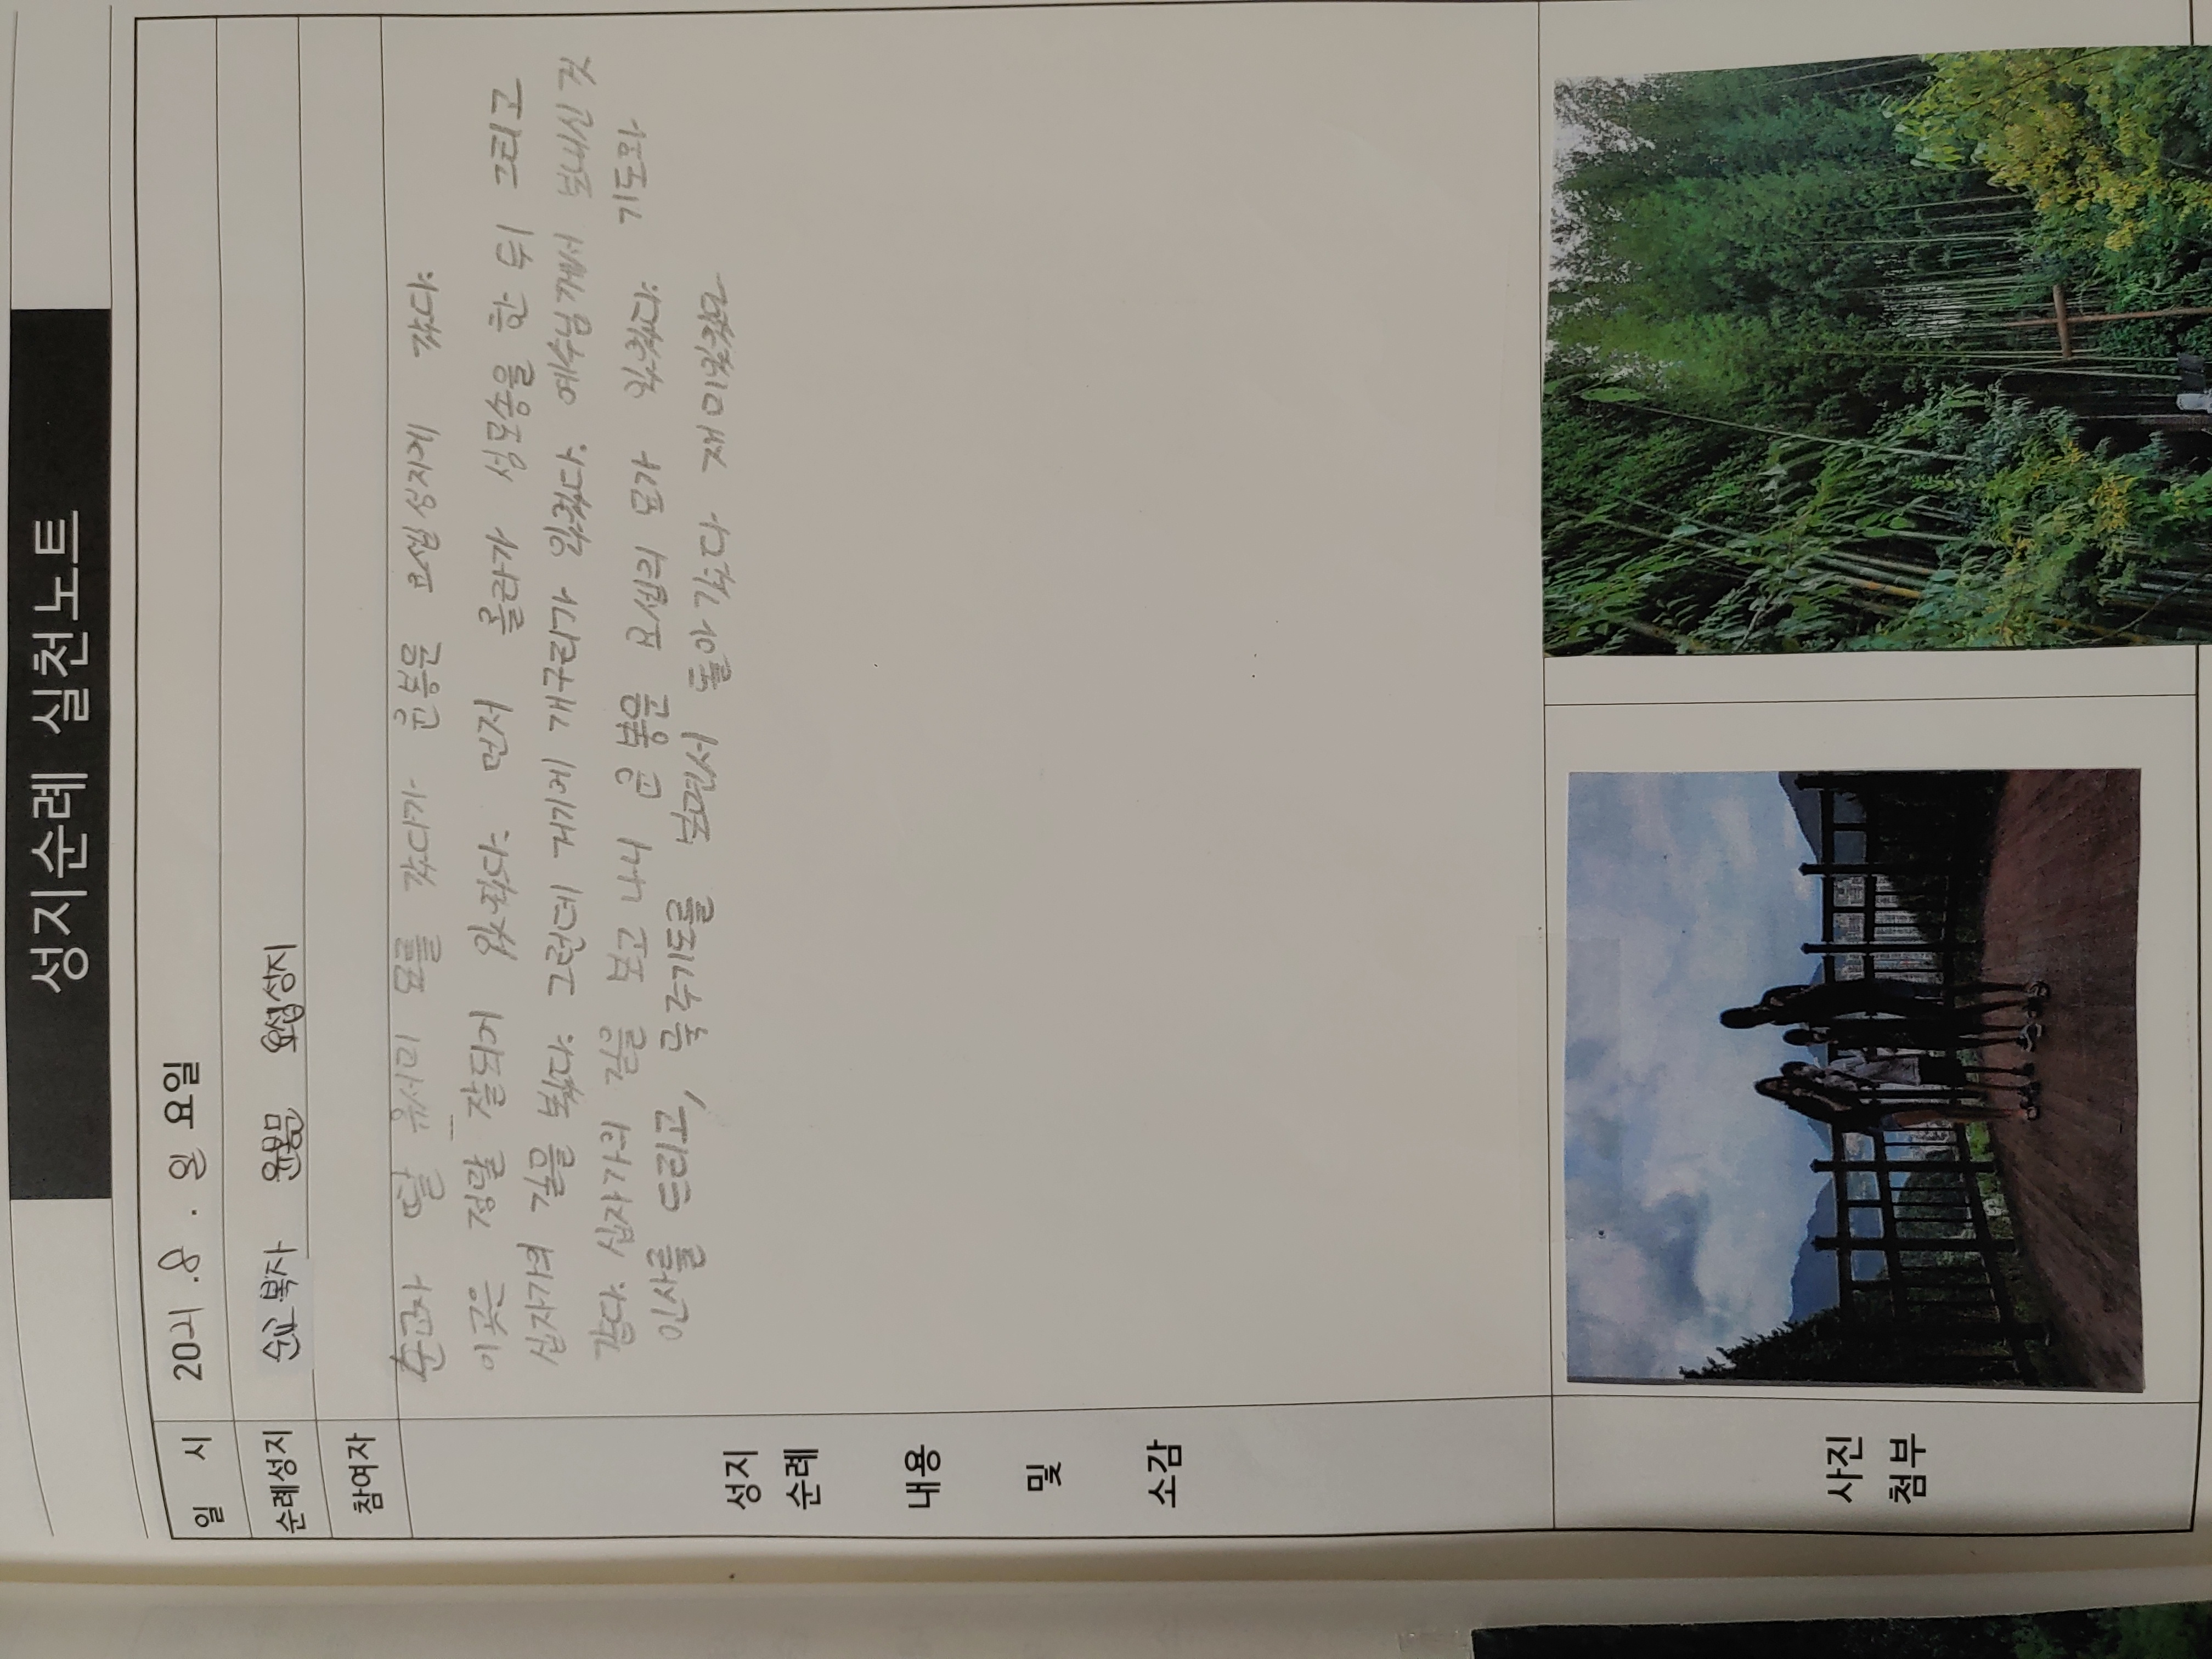 성지순례 실천노트
일 시 2021.8. 일 요일
순례성지 순교복자 윤봉문 요셉성지
참여자
성지
순례
내용
및
소감
순교자 딸 유서리 묘를 갔다가 윤봉문 요셉성지에 갔다.
이곳은 정말 잘되어 있었다. 먼저 올라가 성모송을 한 뒤 그리고
십자가의 길을 봤다. 그런데 거기에 개구리가 있었다. 예수님께서 보내신 것
같다. 십자가의 길을 보고 나니 윤봉문 요셉의 묘가 있었다. 기도와
인사를 드리고, 묵주기도를 보면서 돌아갔다 재미있었다
사진
첨부